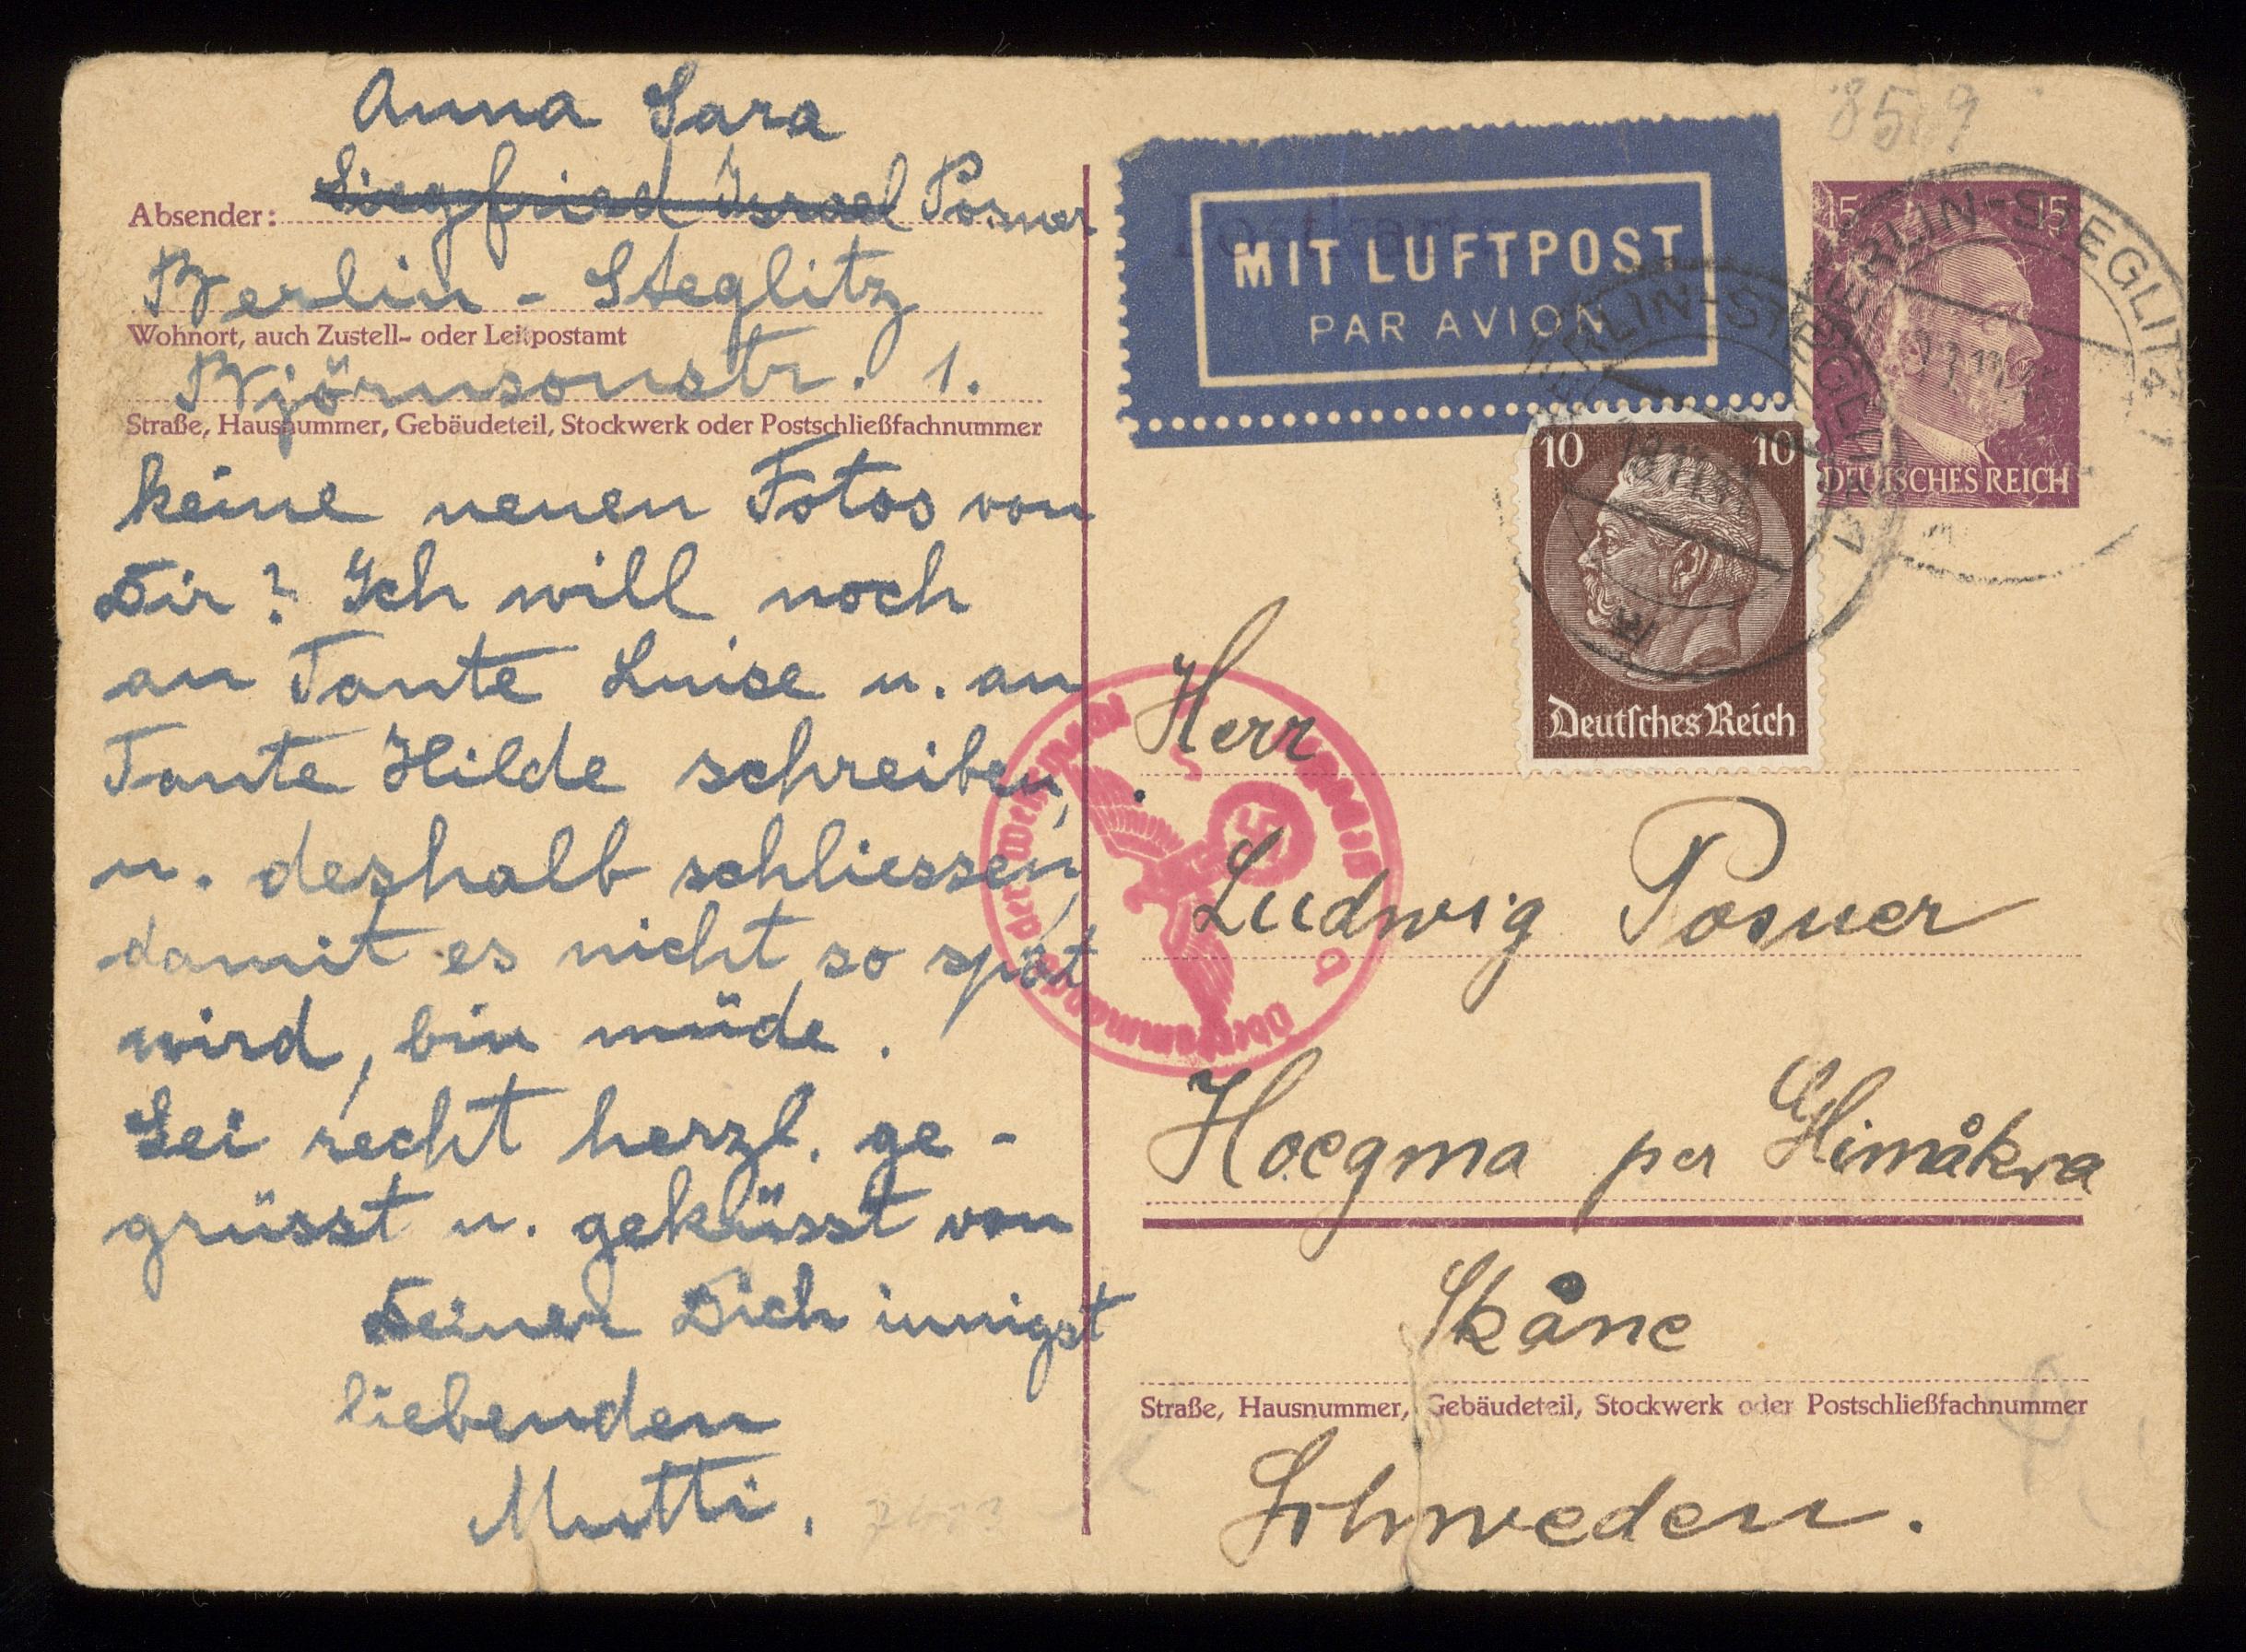 Anna Sara
Absender: Siegfried Israel Posner
Berlin - Steglitz
Wohnort, auch Zustell- oder Leitpostamt
Björnsonstr. 1.
Straße, Hausnummer, Gebäudeteil, Stockwerk oder Postschließfachnummer
keine neuen Fotos von
Dir? Ich will noch
an Tante Luise u. an
Tante Hilde schreiben,
u. deshalb schliessen,
damit es nicht so spät
wird, bin müde.
Sei recht herzl. ge-
grüsst u. geküsst von
Deiner Dich innigst
liebenden
Mutti.
Postkarte
MIT LUFTPOST
PAR AVION
15 15
DEUTSCHES REICH
BERLIN-STEGLITZ
BERLIN-STEGLITZ
10 10
Deutsches Reich
Oberkommando der Wehrmacht
Herr
Ludwig Posner
Hoegma per Glimåkra
Skåne
Straße, Hausnummer, Gebäudeteil, Stockwerk oder Postschließfachnummer
Schweden.